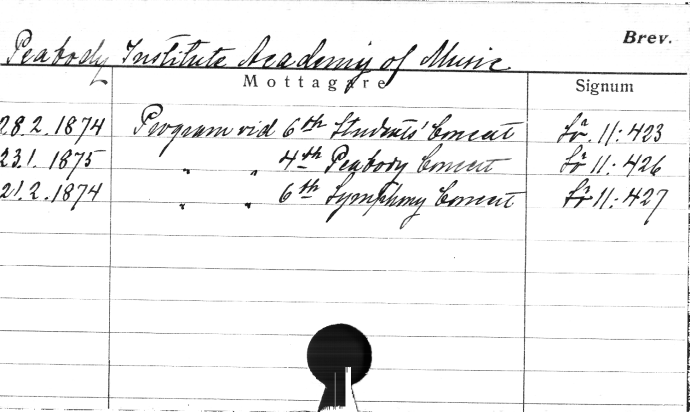 Brev.
Peabody Institute Academy of Music
Mottagare Signum
28.2.1874 Program vid 6th Students' Concert Lö. 11:423
23.1.1875 " " 4th Peabody Concert Lö 11:426
21.2.1874 " " 6th Symphony Concert Lö 11:427